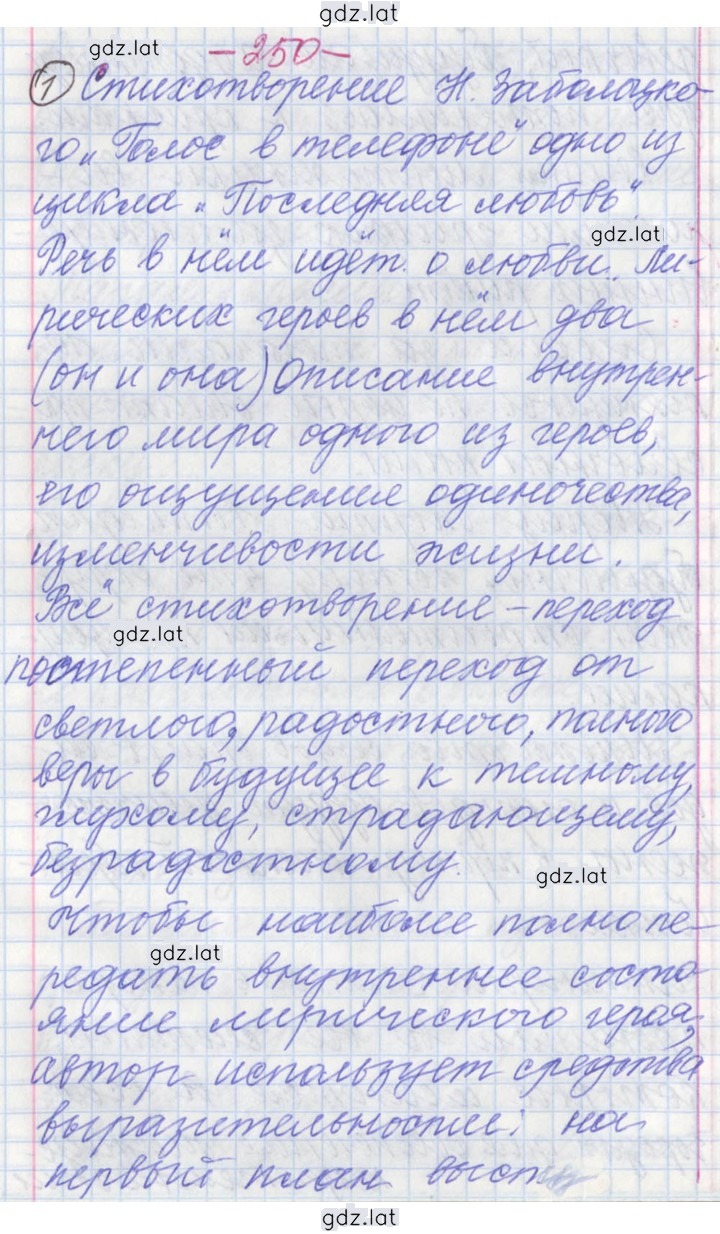 gdz.lat
gdz.lat
-250-
1 Стихотворение Н. Заболоцко-
го „Голос в телефоне" одно из
цикла „Последняя любовь".
gdz.lat
Речь в нём идёт о любви. Ли-
рических героев в нём два
(он и она) Описание внутрен-
него мира одного из героев,
его ощущения одиночества,
изменчивости жизни.
Всё стихотворение – переход
gdz.lat
постепенный переход от
светлого, радостного, полного
веры в будущее к темному,
глухому, страдающему,
безрадостному.
gdz.lat
Чтобы наиболее полно пе-
gdz.lat
редать внутреннее состо
яние лирического героя,
автор использует средства
выразительности: на
первый план высту
gdz.lat